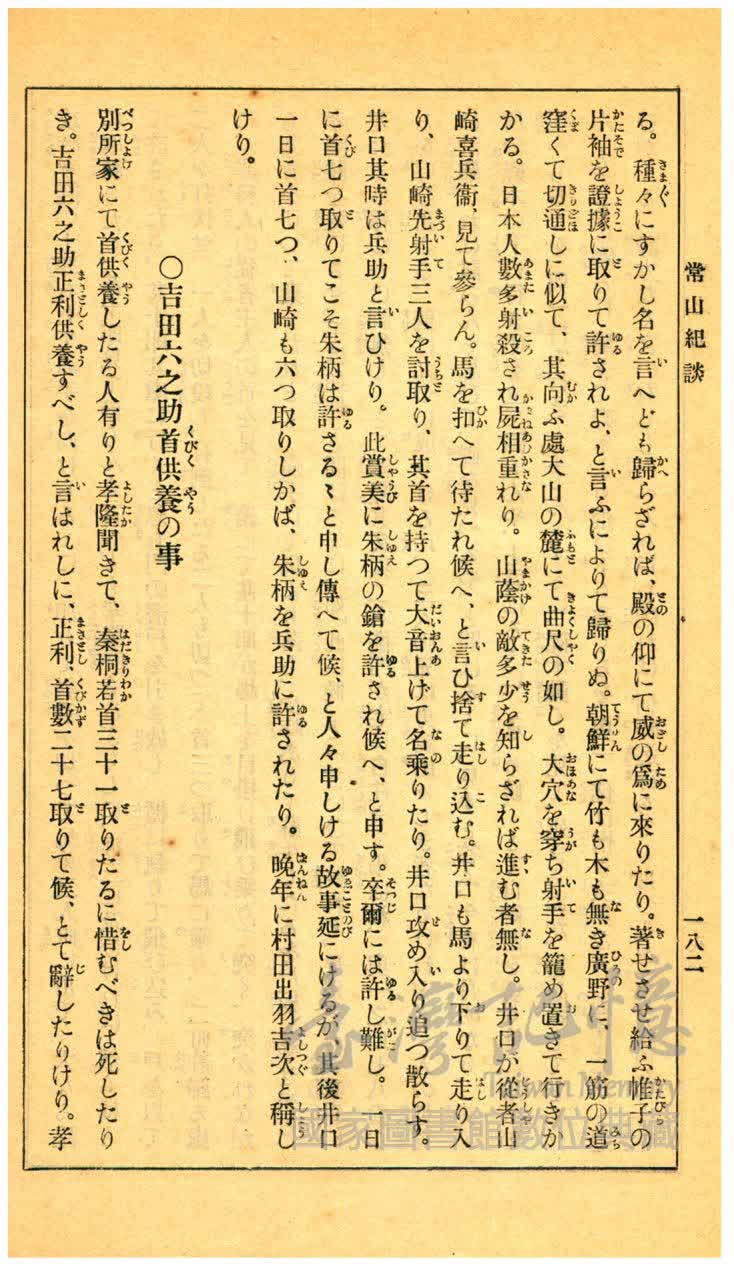 常山紀談
一八二
る。種々にすかし名を言へども歸らざれば、殿の仰にて威の爲に來りたり。著せさせ給ふ帷子の
片袖を證據に取りて許されよ、と言ふによりて歸りぬ。朝鮮にて竹も木も無き廣野に、一筋の道
窪くて切通しに似て、其向ふ處大山の麓にて曲尺の如し。大穴を穿ち射手を籠め置きて行きか
かる。日本人數多射殺され屍相重れり。山蔭の敵多少を知らざれば進む者無し。井口が從者山
崎喜兵衞、見て參らん。馬を扣へて待たれ候へ、と言ひ捨て走り込む。井口も馬より下りて走り入
り、山崎先射手三人を討取り、其首を持つて大音上げて名乘りたり。井口攻め入り追つ散らす。
井口其時は兵助と言ひけり。此賞美に朱柄の鎗を許され候へ、と申す。卒爾には許し難し。一日
に首七つ取りてこそ朱柄は許さるゝと申し傳へて候、と人々申しける故事延にけるが、其後井口
一日に首七つ、山崎も六つ取りしかば、朱柄を兵助に許されたり。晩年に村田出羽吉次と稱し
けり。
〇吉田六之助首供養の事
別所家にて首供養したる人有りと孝隆聞きて、秦桐若首三十一取りたるに惜むべきは死したり
き。吉田六之助正利供養すべし、と言はれしに、正利、首數二十七取りて候、とて辭したりけり。孝
臺灣記憶
Taiwan Memory
國家圖書館數位典藏